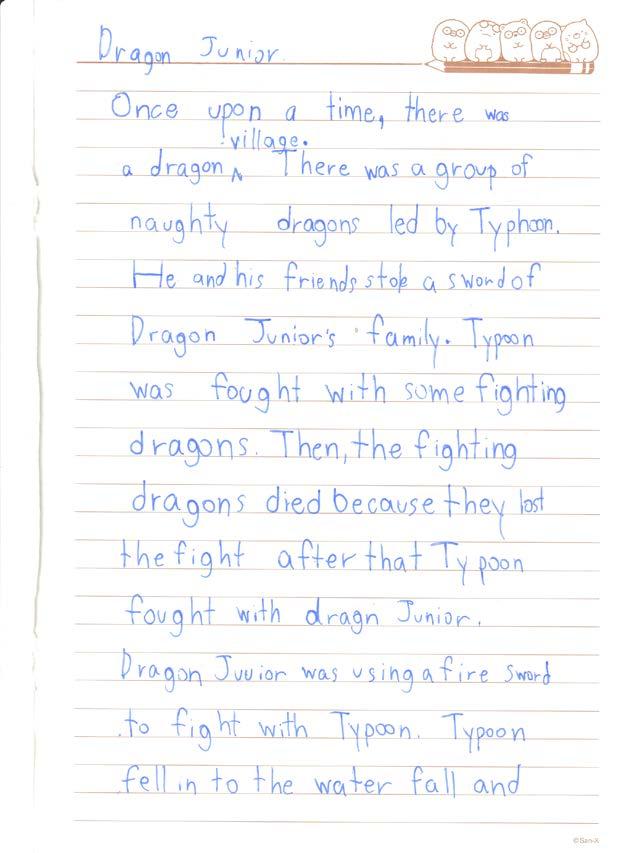 Dragon Junior.
Once upon a time, there was
village.
a dragon ^ There was a group of
naughty dragons led by Typhoon.
He and his friends stole a sword of
Dragon Junior's family. Typoon
was fought with some fighting
dragons. Then, the fighting
dragons died because they lost
the fight after that Typoon
fought with dragn Junior.
Dragon Juuior was using a fire sword
to fight with Typoon. Typoon
fell in to the water fall and
©San-X